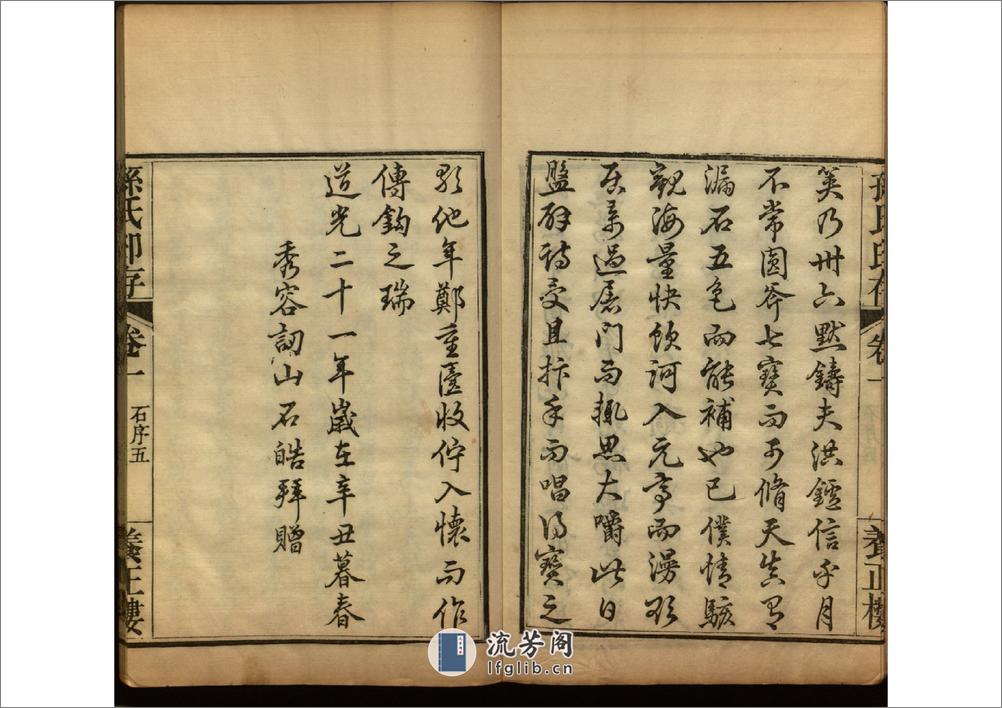 孫氏印存 卷一
養正樓
笑乃卅六默鑄夫洪鑪信乎月
不常圓斧七寶而可脩天真有
漏石五色而能補也已僕情駭
觀海量快飲河入元亭而漫
居景過屠門而輒思大嚼此日
盤辟詩受且抃手而唱得寶之
歌他年鄭重匧收佇入懷而作
傳鈎之瑞
道光二十一年歲在辛丑暮春
秀容訒山石皓拜贈
孫氏印存 卷一 石序五
養正樓
流芳阁
lfglib.cn